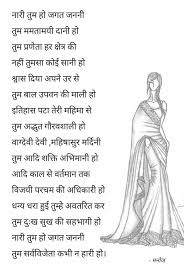 नारी तुम हो जगत जननी
तुम ममतामयी दानी हो
तुम प्रणेता हर क्षेत्र की
नहीं तुमसा कोई सानी हो
श्वास दिया अपने उर से
तुम बाल उपवन की माली हो
इतिहास पटा तेरी महिमा से
तुम अद्भुत गौरवशाली हो
वाग्देवी देवी ,महिषासुर मर्दिनी
तुम आदि शक्ति अभिमानी हो
आदि काल से वर्तमान तक
विजयी परचम की अधिकारी हो
धन्य धरा हुई तुम्हे अवतरित कर
तुम दुःख सुख की सहभागी हो
नारी तुम हो जगत जननी
तुम सर्वविजेता कभी न हारी हो।